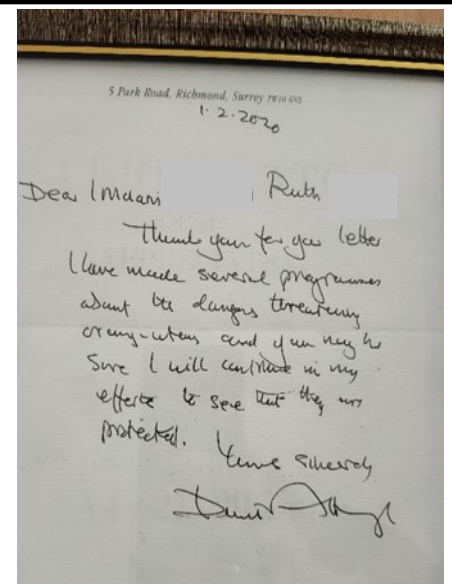 5 Park Road, Richmond, Surrey TW10 6NS
1. 2. 2020
Dear Imdani Ruth
Thank you for your letter
I have made several programmes
about the dangers threatening
orang-utans and you may be
sure I will continue in my
efforts to see that they are
protected.
Yours sincerely